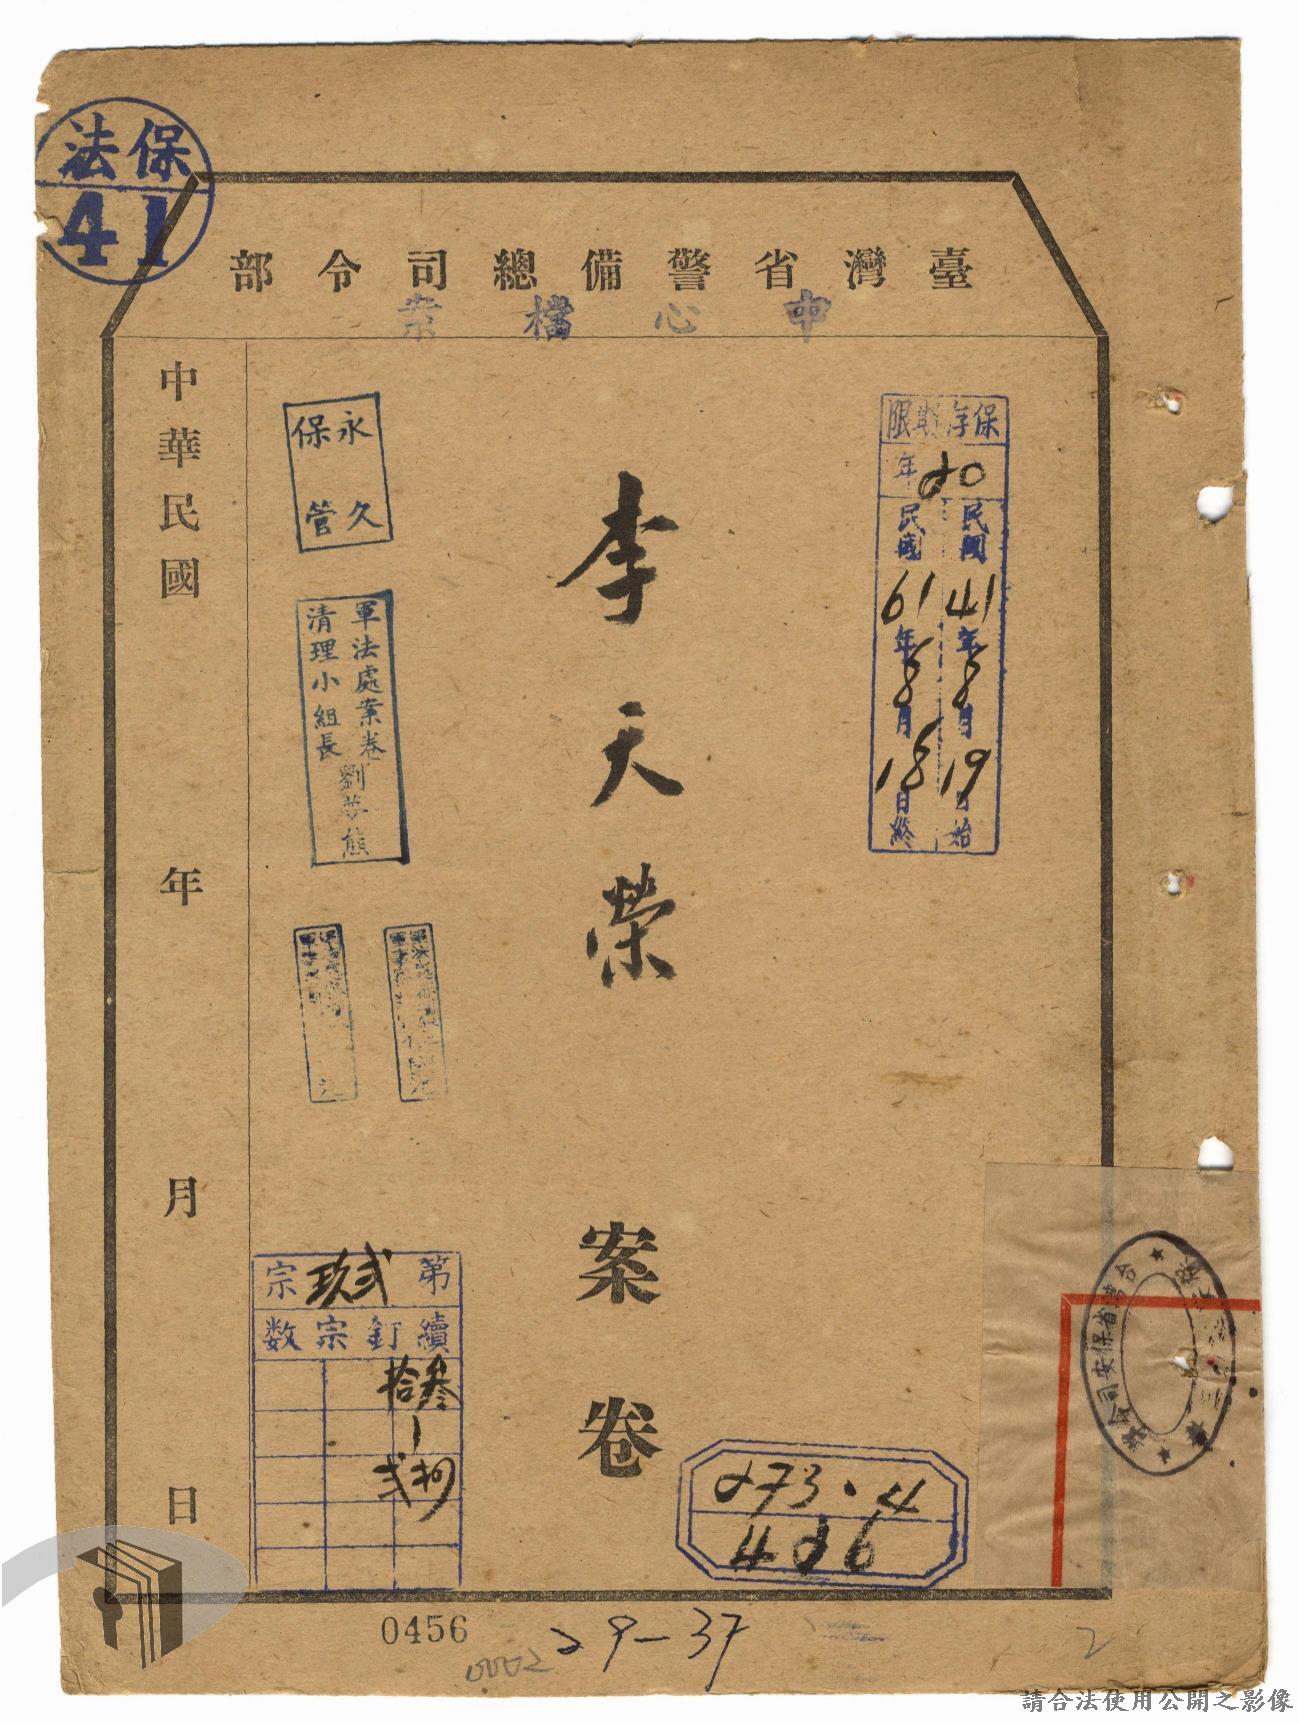 保法
41
臺灣省警備總司令部
中心檔案
保存期限
20年
民國41年8月19日始
民國61年8月18日終
李天榮
案卷
永久
保管
軍法處案卷
清理小組長
劉夢熊
中華民國 年 月 日
第 弍玖 宗
續釘宗数
叁拾
弍
273.4
426
0456
29-37
0002
2
請合法使用公開之影像